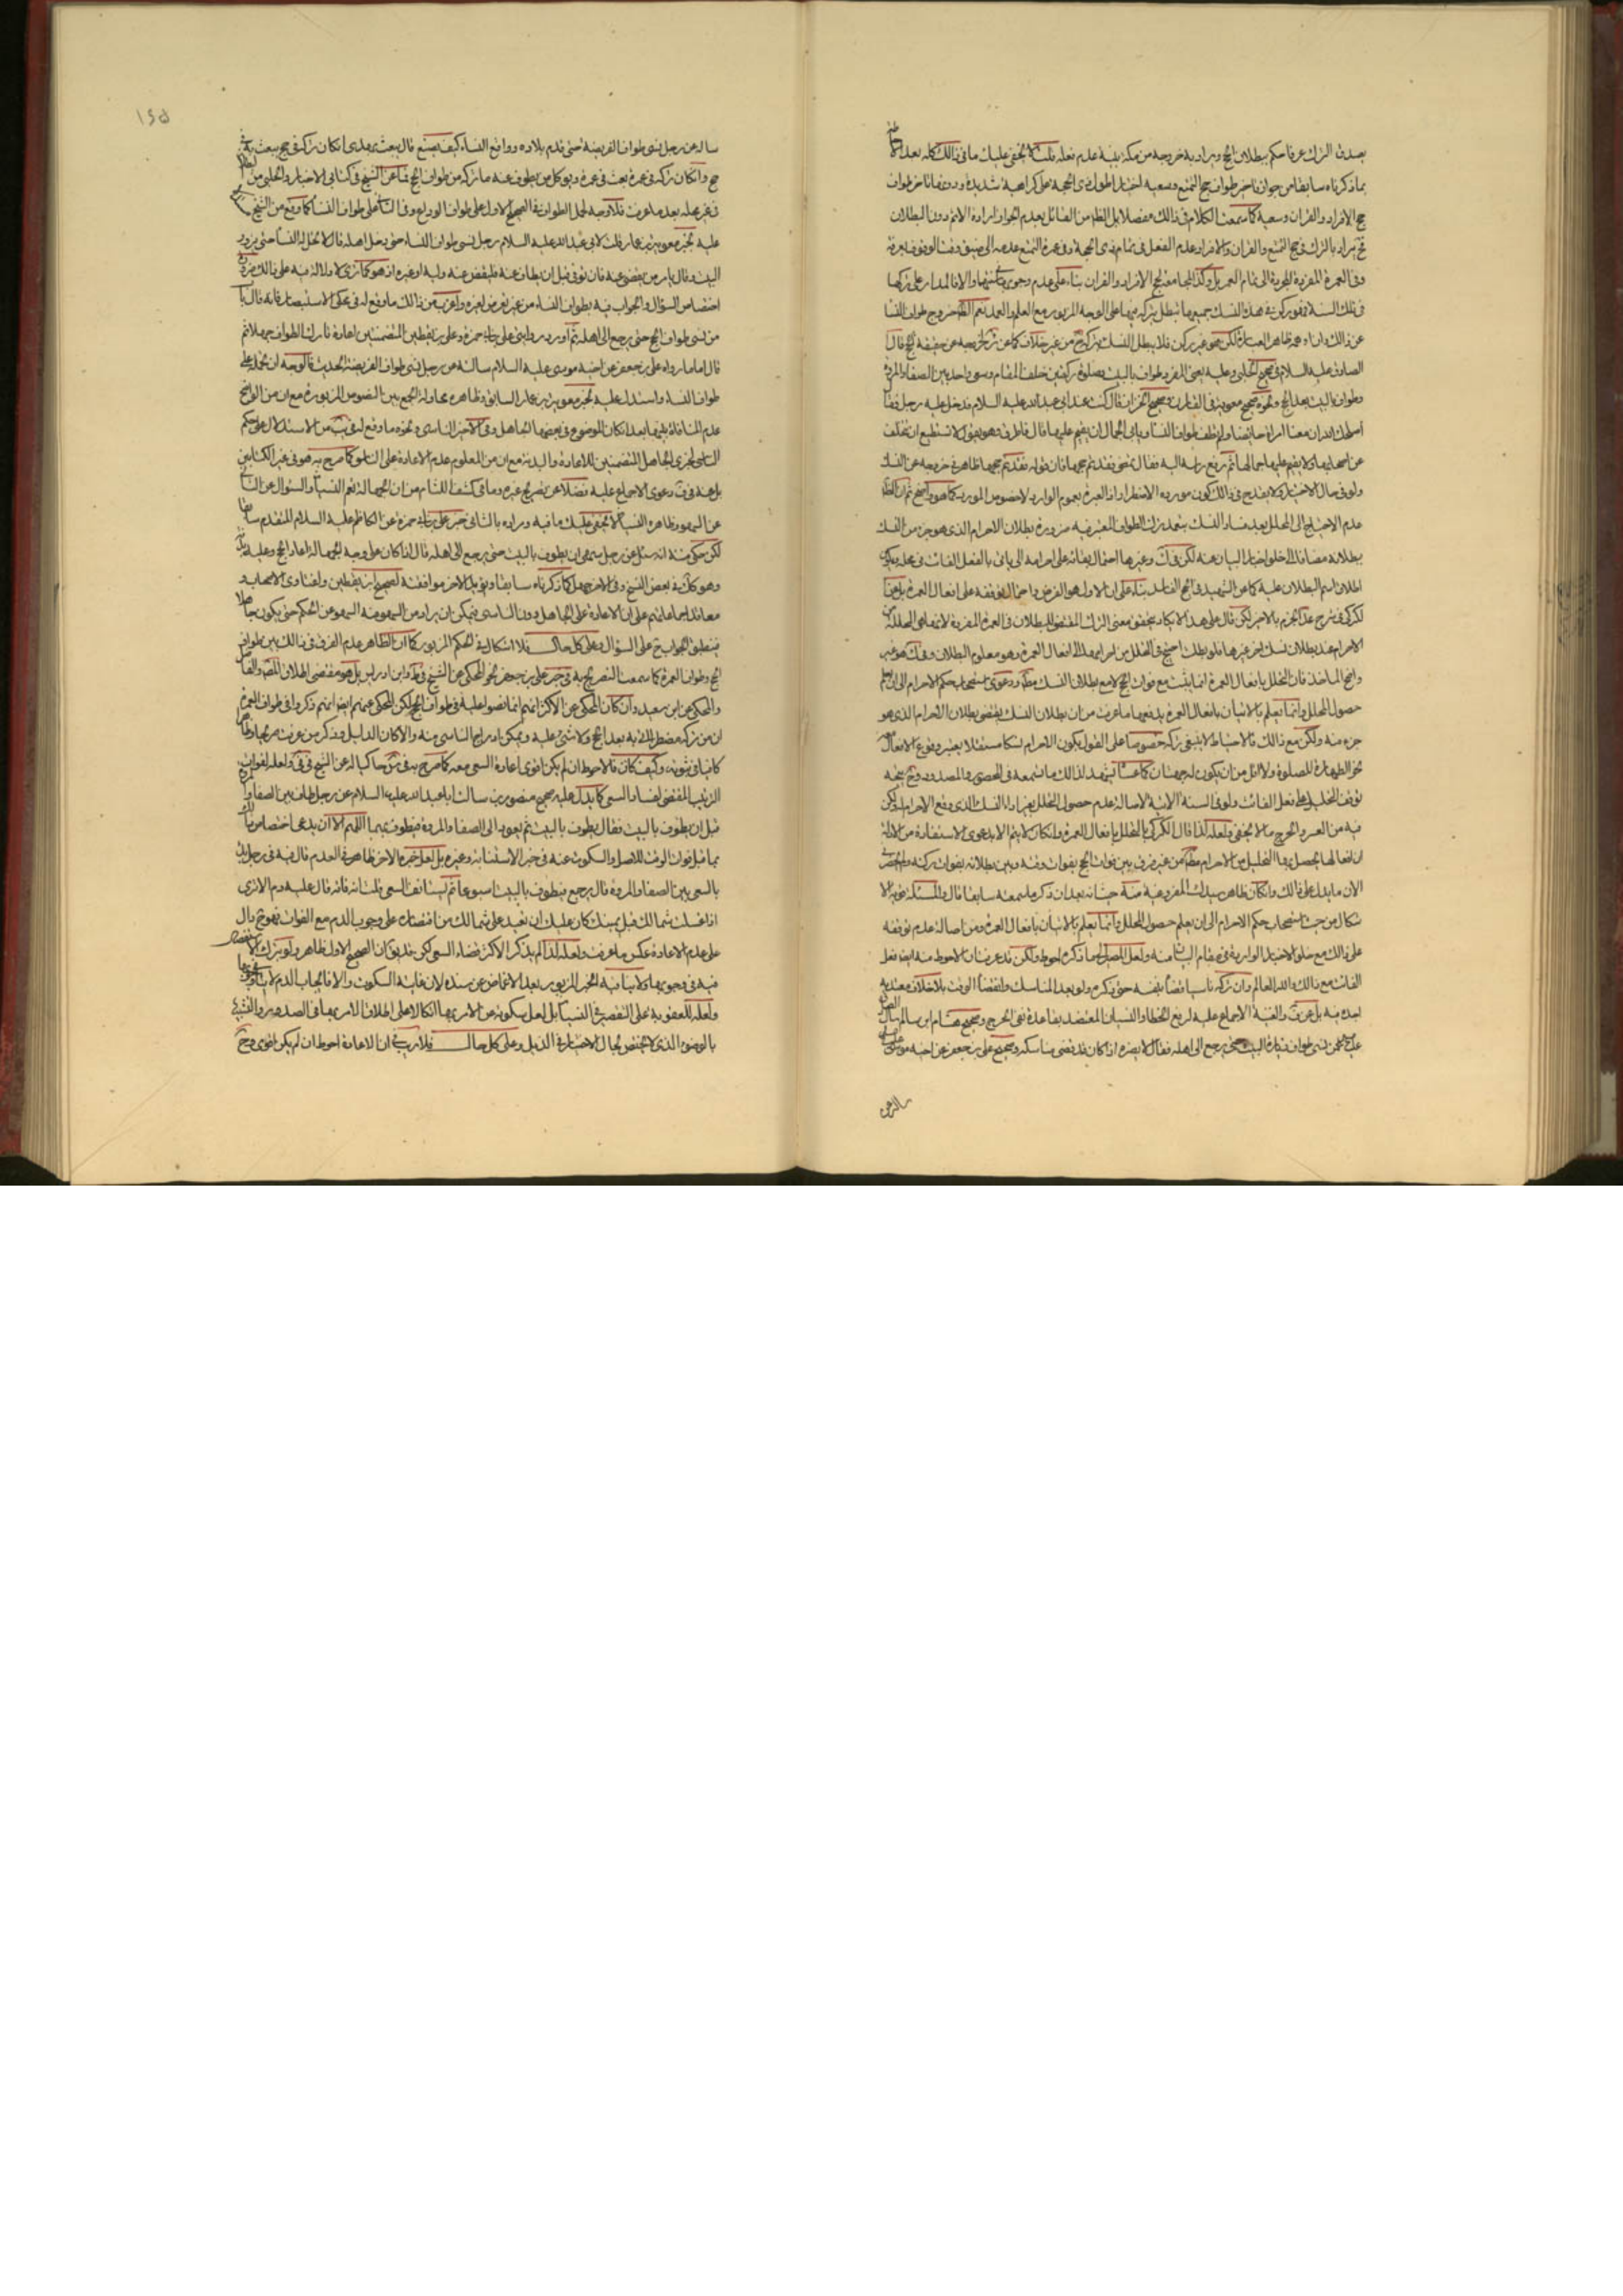 يصدق الترك عرفا حكم ببطلان الحج ويراد به خروجه من مكة بنية عدم فعله قلت لا يخفى عليك ما في ذلك كله بعد الاحاطة
بما ذكرناه سابقا من جواز تاخير طواف حج التمتع وسعيه اختيارا طول ذي الحجة على كراهية شديدة ودونها تاخير طواف
حج الافراد والقران وسعيه كما سمعت الكلام في ذلك مفصلا بل الظاهر من القائل بعدم الجواز ارادة الاثم دون البطلان
فح يراد بالترك في حج التمتع والقران والافراد عدم الفعل في تمام ذي الحجة وفي عمرة التمتع عدمه الى ضيق وقت الوقوف بعرفة
وفي العمرة المفردة المجردة الى تمام العمر بل وكذا المجامعة لحج الافراد والقران بناء على عدم وجوب والا فالمدار على تركها
في تلك السنة
عن ذلك وان اوهمه ظاهر العبارة لكن هو غير ركن فلا يبطل النسك بتركه من غير خلاف كما عن لخروجه عن حقيقة الحج قال
الصادق عليه السلام في صحيح الحلبي وعليه يعنى المفرد طواف بالبيت وصلوة ركعتين خلف المقام وسعى واحد بين الصفا والمروة
وطواف بالبيت بعد الحج ونحوه صحيح معوية في القارن وصحيح الخزاز قال كنت عند ابي عبد الله عليه السلام فدخل عليه رجل فقال
اصلحك الله ان معنا امراة حايضا ولم تطف طواف النساء ويابى الجمال ان يقيم عليها قال فاطرق وهو يقول لا تستطيع ان تتخلف
عن اصحابها ولا يقيم عليها جمالها ثم رفع راسه اليه فقال تمضى فقد تم حجها فان قوله فقد تم حجها ظاهر في خروجه عن النسك
ولو في حال الاختيار ولا يقدح في ذلك كون مورده الاضطرار اذ العبرة بعموم الوارد لا خصوص المورد كما هو واضح ثم ان الظاهر
عدم الاحتياج الى المحلل بعد فساد النسك بتعمد ترك الطواف المعتبر فيه ضرورة بطلان الاحرام الذي هو جزء من النسك
ببطلانه مضافا الى خلو اخبار البيان عنه لكن في وغيرها احتمال بقائه على احرامه الى ان ياتى بالفعل الفائت في محله ويكون
اطلاق اسم البطلان عليه كما عن الشهيد في الحج الفاسد بناء على ان الاول هو الفرض واحتمال توقفه على افعال العمرة بل عن
الكركي في شرح عد الجزم بالاخير لكن قال على هذا لا يكاد يتحقق معنى الترك المقتضى للبطلان في العمرة المفردة لانها هي المحللة من
الاحرام عند بطلان نسك اخر غيرها فلو بطلت احتيج في التحلل من احرامها الى افعال العمرة وهو معلوم البطلان وهو غير
واضح الماخذ فان التحلل بافعال العمرة انما يثبت مع فوات الحج لا مع بطلان النسك ودعوى استصحاب حكم الاحرام الى ان يعلم
حصول المحلل وانما يعلم بالاتيان بافعال العمرة يدفعها ما عرفت من ان بطلان النسك يقتضى بطلان الاحرام الذي هو
جزء منه ولكن مع ذلك فالاحتياط لا ينبغى تركه خصوصا على القول بكون الاحرام نسكا مستقلا يعتبر وقوع الافعال
نحو الطهارة للصلوة ولا اقل من ان يكون له جهتان كما عساه يشهد لذلك ما تسمعه في المحصور والمصدود وح يتجه
توقف التحليل على فعل الفائت ولو في السنة الاتية لاصالة عدم حصول التحلل بغير اداء النسك الذي وقع الاحرام له ولكن
فيه من العسر والحرج ما لا يخفى ولعله لذا قال الكركي بالتحلل بافعال العمرة وان كان لا يتم الا بدعوى الاستفادة من الادلة
ان افعالها يحصل بها التحليل من الاحرام من غير فرق بين فوات الحج بفوات وقته وبين بطلانه بفوات ركنه ولا يحضرني
الان ما يدل على ذلك وان كان ظاهر سيد المدارك المفروغية منه حيث انه بعد ان ذكر ما سمعته سابقا قال والمسئلة قوية الا
شكال من حيث استصحاب حكم الاحرام الى ان يعلم حصول المحلل وانما يعلم بالاتيان بافعال العمرة ومن اصالة عدم توقفه
على ذلك مع خلو الاخبار الواردة في مقام البيان منه ولعل المصير الى ما ذكره احوط ولكن قد عرفت ان الاحوط منه ايضا فعل
الفائت مع ذلك والله العالم وان تركه ناسيا قضاه بنفسه حتى تذكره ولو بعد المناسك وانقضاء الوقت بلا خلاف معتد به
اجده فيه بل عن والغنية الاجماع عليه لرفع الخطا والنسيان المعتضد بقاعدة نفى الحرج وصحيح هشام ابن سالم سال الصادق
عليه عمن نسى طواف زيارة البيت حتى يرجع الى اهله فقال لا يضره اذا كان قد قضى مناسكه وصحيح علي بن جعفر عن اخيه موسى
سالته عن
١٤٥
سالته عن رجل نسى طواف الفريضة حتى قدم بلاده وواقع النساء كيف يصنع قال يبعث بهدى ان كان تركه في حج يبعث به في
حج وان كان تركه في عمرة بعث في عمرة ويوكل من يطوف عنه ما تركه من طواف الحج فما عن الشيخ في كتابي الاخبار والحلبي من
في غير محله بعد ما عرفت فلا وجه لحمل الطواف في الصحيح الاول على طواف الوداع وفي الثاني على طواف النساء كما وقع من الشيخ
عليه بخبر معوية بن عمار قلت لابي عبد الله عليه السلام رجل نسى طواف النساء حتى دخل اهله قال لا تحل له النساء حتى يزور
البيت وقال يامر من يقضى عنه فان توفى قبل ان يطاف عنه فليقض عنه وليه او غيره اذ هو كما ترى لا دلالة فيه على ذلك ضرورة
اختصاص السؤال والجواب فيه بطواف النساء من غير تعرض لغيره واغرب من ذلك ما وقع له في محكى الاستبصار فانه قال باب
من نسى طواف الحج حتى يرجع الى اهله ثم اورد روايتى على بن ابي حمزة وعلى بن يقطين المتضمنتين اعادة تارك الطواف جهلا ثم
قال فاما ما رواه على بن جعفر عن اخيه موسى عليه السلام سالته عن رجل نسى طواف الفريضة الحديث فالوجه ان نحمله على
طواف النساء واستدل عليه بخبر معوية بن عمار السابق وظاهره محاولة الجمع بين النصوص المزبورة مع ان من الواضح
عدم المنافاة بينها بعد ان كان الموضوع في بعضها الجاهل وفي الاخير الناسى ونحوه ما وقع له في من الاستدلال على حكم
الناسى بخبرى الجاهل المتضمنين للاعادة والبدنة مع ان من المعلوم عدم الاعادة على الناسى كما صرح به هو في غير الكتابين
بل عنه في دعوى الاجماع عليه فضلا عن تصريح غيره وما في كشف اللثام من ان الجهالة تعم النسيان والسؤال عن الثاني
عن السهو وظاهره النسيان لا يخفى عليك ما فيه ومراده بالثاني خبر على بن ابي حمزة عن الكاظم عليه السلام المتقدم سابقا
لكن حكى منه انه سئل عن رجل سهى ان يطوف بالبيت حتى يرجع الى اهله قال اذا كان على وجه الجهالة اعاد الحج وعليه بدنة
وهو كذلك في بعض النسخ وفي الاخر جهل كما ذكرناه سابقا ويؤيد الاخر موافقته لصحيح ابن يقطين ولفتاوى الاصحاب و
معاقد اجماعاتهم على ان الاعادة على الجاهل دون الناسى فيمكن ان يراد من السهو منه السهو عن الحكم حتى يكون جاهلا
فينطبق الجواب ح على السؤال وعلى كل حال فلا اشكال في الحكم المزبور كما ان الظاهر عدم الفرق في ذلك بين طواف
الحج وطواف العمرة كما سمعت التصريح به في خبر على بن جعفر نحو المحكى عن الشيخ في وابن ادريس بل هو مقتضى اطلاق المصنف والفاضل
والمحكى عن ابن سعيد وان كان المحكى عن الاكثر انهم انما نصوا عليه في طواف الحج لكن المحكى عنهم ايضا انهم ذكروا في طواف العمرة
ان من تركه مضطرا اتى به بعد الحج ولا شئ عليه ويمكن ادراج الناسى منه والا كان الدليل وذكر من عرفت صريحا وظاهرا
كافيا في ثبوته وكيف كان فالاحوط ان لم يكن اقوى اعادة السعى معه كما صرح به في حاكيا له عن الشيخ في ولعله لفوات
الترتيب المقتضى لفساد السعى كما يدل عليه صحيح منصور بن سالت ابا عبد الله عليه السلام عن رجل طاف بين الصفا والمروة
قبل ان يطوف بالبيت فقال يطوف بالبيت ثم يعود الى الصفا والمروة فيطوف بهما اللهم الا ان يدعى اختصاص ذلك
بما قبل فوات الوقت للاصل والسكوت عنه في خبر الاستنابة وغيره بل لعل خبره الاخر ظاهر في العدم قال فيه في رجل بدا
بالسعى بين الصفا والمروة قال يرجع فيطوف بالبيت اسبوعا ثم يستانف السعى قلت انه فاته قال عليه دم الا ترى
اذا غسلت شمالك قبل يمينك كان عليك ان تعيد على شمالك من اقتصاره على وجوب الدم مع الفوات فهو ح دال
على عدم الاعادة عكس ما عرفت ولعله لذا لم يذكر الاكثر قضاء السعى لكن قد يق ان الصحيح الاول ظاهر ولو بترك الاستفصال
فيه في وجوبها ولا ينافيه الخبر المزبور بعد الاغماض عن سنده لان غايته السكوت والا فايجاب الدم لا ينافي وجوبها
ولعله للعقوبة على التقصير في النسيان بل لعل سكوته عن الامر بها اتكالا على اطلاق الامر بها في الصدر والتشبيه
بالوضوء الذي لا يختص بحال الاختيار في الذيل وعلى كل حال فلا ريب في ان الاعادة احوط ان لم يكن اقوى وح